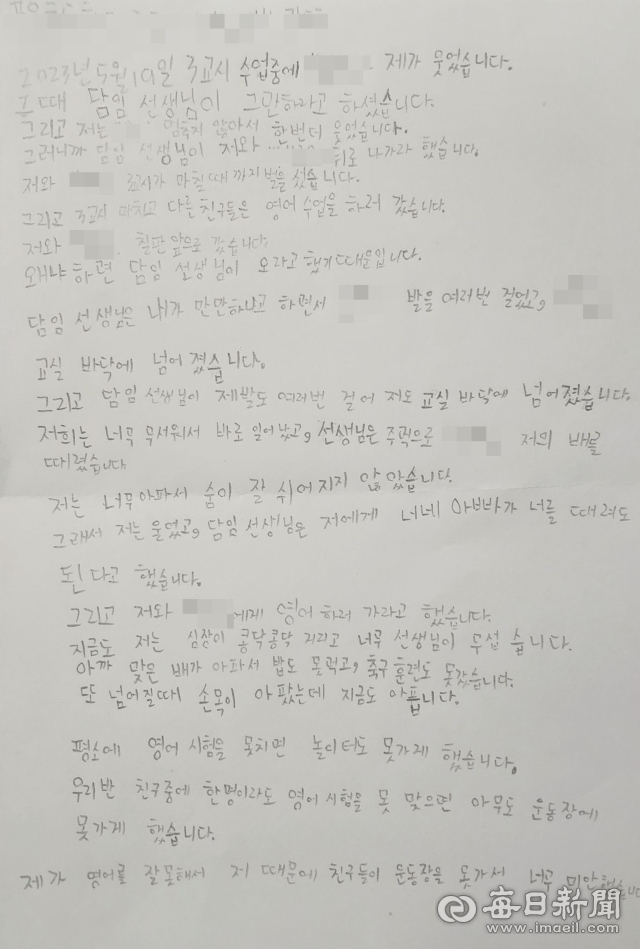 2023년 5월 19일 3교시 수업중에 제가 웃었습니다.
그때 담임 선생님이 그만하라고 하셨습니다.
그리고 저는 멈추지 않아서 한번더 웃었습니다.
그러니까 담임 선생님이 저와 뒤로 나가라 했습니다.
저와 3교시가 마칠때까지 벌을 섰습니다.
그리고 3교시 마치고 다른 친구들은 영어 수업을 하러 갔습니다.
저와 칠판 앞으로 갔습니다.
왜냐 하면 담임 선생님이 오라고 했기 때문입니다.
담임 선생님은 내가 만만하냐고 하면서 발을 여러번 걸었고,
교실 바닥에 넘어 졌습니다.
그리고 담임 선생님이 제발도 여러번 걸어 저도 교실 바닥에 넘어졌습니다.
저희는 너무 무서워서 바로 일어났고, 선생님은 주먹으로 저의 배를
때렸습니다
저는 너무아파서 숨이 잘 쉬어지지 않았습니다.
그래서 저는 울었고, 담임선생님은 저에게 너네 아빠가 너를 때려도
된다고 했습니다.
그리고 저와 에게 영어 하러 가라고 했습니다.
지금도 저는 심장이 콩닥콩닥 거리고 너무 선생님이 무섭습니다.
아까 맞은 배가 아파서 밥도 못먹고, 축구 훈련도 못갔습니다.
또 넘어질때 손목이 아팠는데 지금도 아픕니다.
평소에 영어 시험을 못치면 놀이터도 못가게 했습니다.
우리반 친구중에 한명이라도 영어 시험을 못 맞으면 아무도 운동장에
못가게 했습니다.
제가 영어를 잘못해서 저 때문에 친구들이 운동장을 못가서 너무 미안했습니다
매일신문 每日新聞
www.imaeil.com